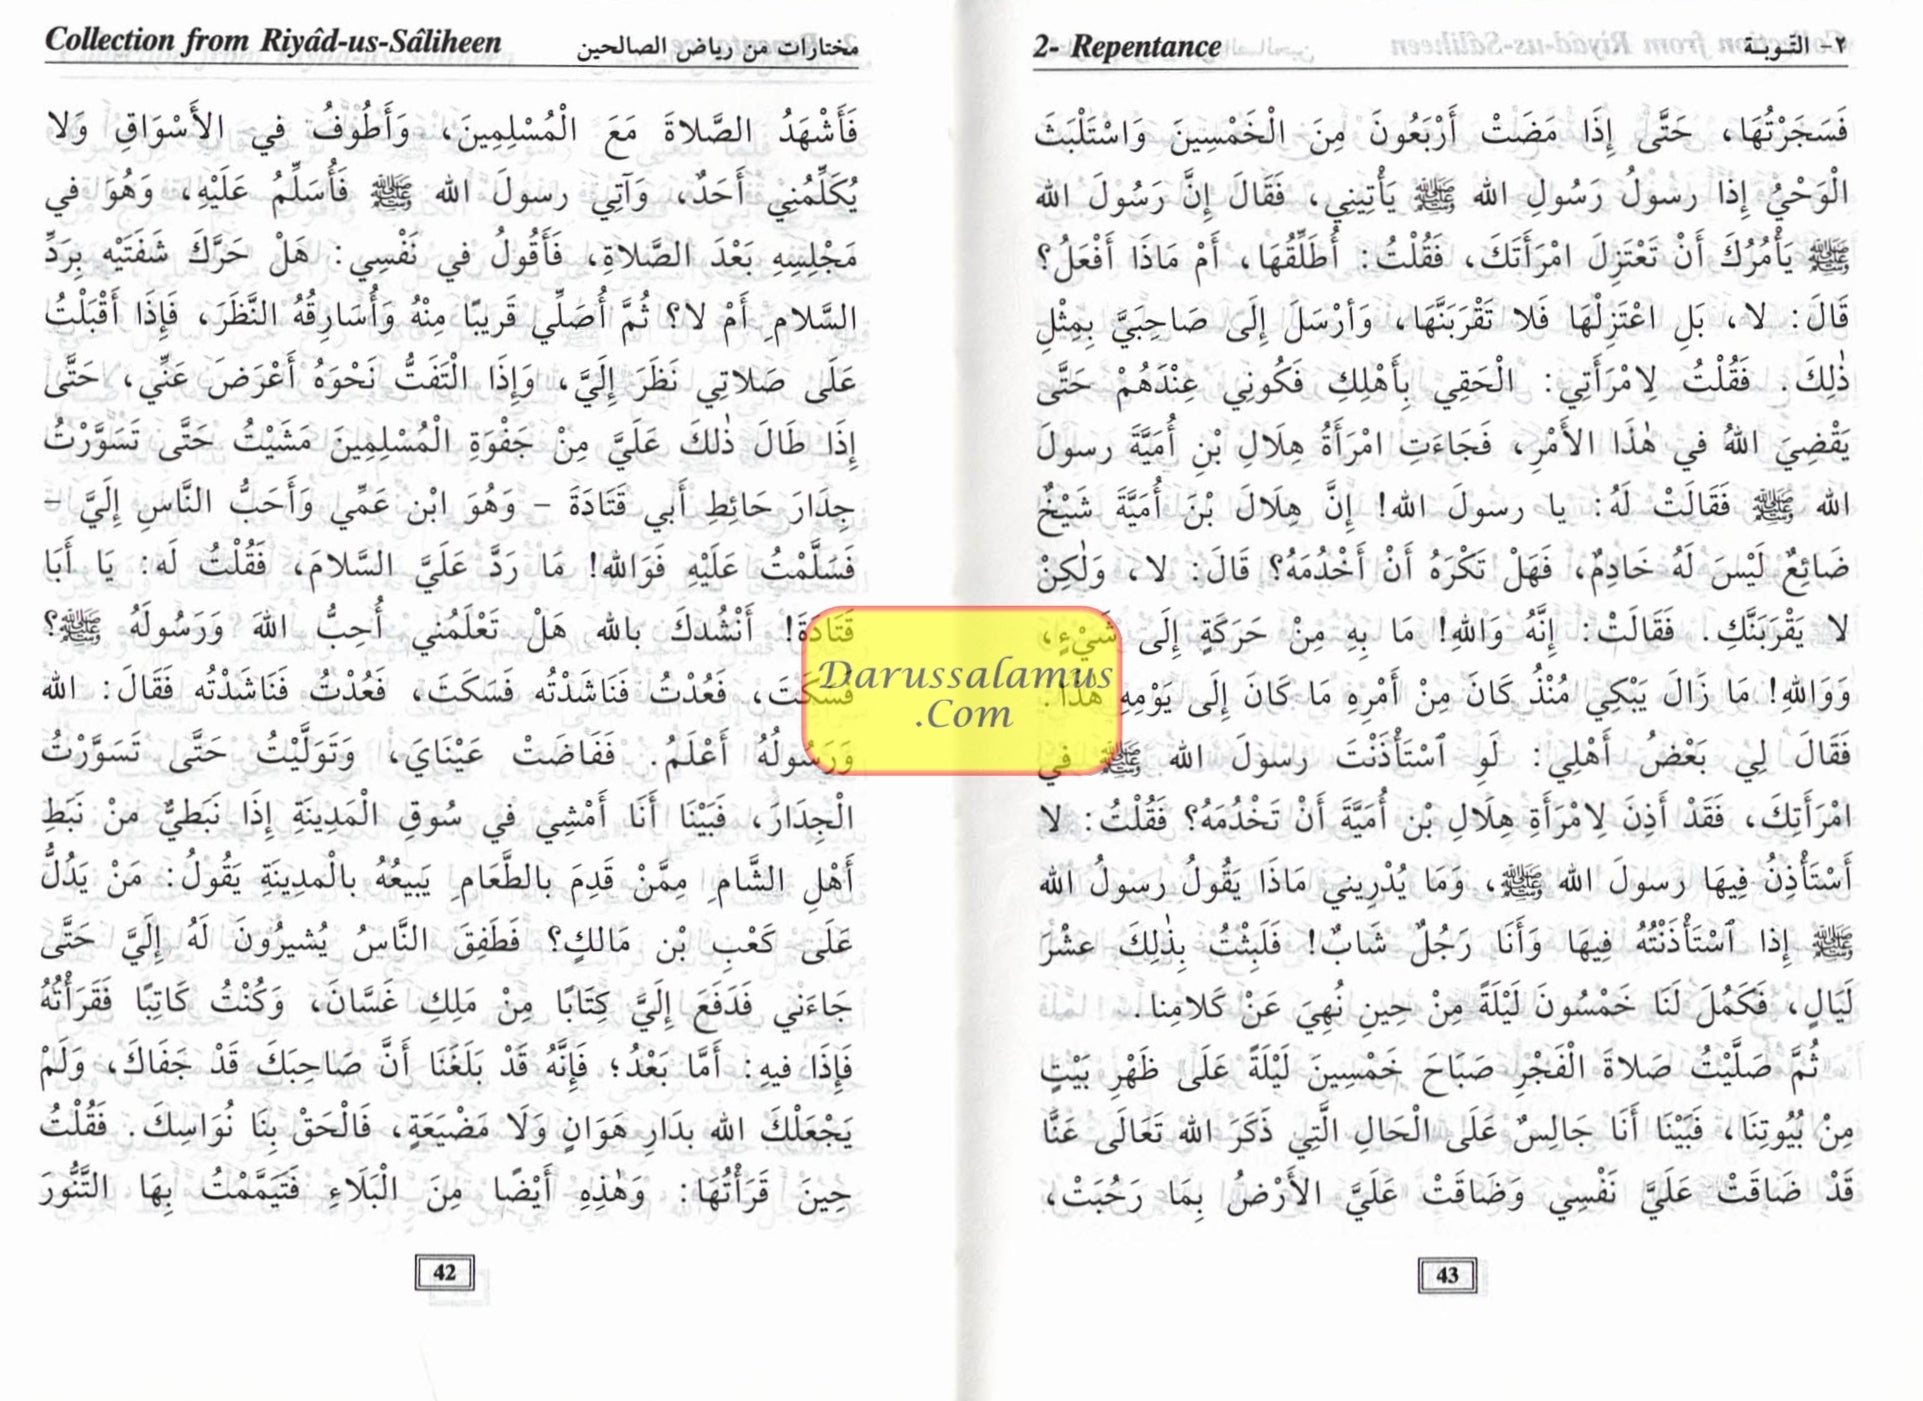 Collection from Riyâd-us-Sâliheen مختارات من رياض الصالحين
فَأَشْهَدُ الصَّلاةَ مَعَ الْمُسْلِمِينَ، وَأَطُوفُ في الأَسْوَاقِ وَلا
يُكَلِّمُنِي أَحَدٌ، وَآتِي رسولَ الله ﷺ فَأُسَلِّمُ عَلَيْهِ، وَهُوَ في
مَجْلِسِهِ بَعْدَ الصَّلاةِ، فَأَقُولُ في نَفْسِي: هَلْ حَرَّكَ شَفَتَيْه بِرَدِّ
السَّلامِ أَمْ لا؟ ثُمَّ أُصَلِّي قَرِيبًا مِنْهُ وَأُسَارِقُهُ النَّظَرَ، فَإِذَا أَقْبَلْتُ
عَلَى صَلاتِي نَظَرَ إِلَيَّ، وَإِذَا الْتَفَتُّ نَحْوَهُ أَعْرَضَ عَنِّي، حَتَّى
إِذَا طَالَ ذٰلكَ عَلَيَّ مِنْ جَفْوَةِ الْمُسْلِمِينَ مَشَيْتُ حَتَّى تَسَوَّرْتُ
جِدَارَ حَائِطِ أَبي قَتَادَةَ – وَهُوَ ابْن عَمِّي وَأَحَبُّ النَّاسِ إِلَيَّ –
فَسَلَّمْتُ عَلَيْهِ فَوَاللهِ! مَا رَدَّ عَلَيَّ السَّلامَ، فَقُلْتُ لَه: يَا أَبَا
قَتَادَةَ! أَنْشُدكَ بالله هَلْ تَعْلَمُني أُحِبُّ اللهَ وَرَسُولَهُ ﷺ؟
فَسَكَتَ، فَعُدْتُ فَنَاشَدْتُه فَسَكَتَ، فَعُدْتُ فَنَاشَدْتُه فَقَالَ: الله
وَرَسُولُهُ أَعْلَمُ. فَفَاضَتْ عَيْنَايَ، وَتَوَلَّيْتُ حَتَّى تَسَوَّرْتُ
الْجِدَارَ، فَبَيْنَا أَنَا أَمْشِي في سُوقِ الْمَدِينَةِ إِذَا نَبَطيٌّ منْ نَبَطِ
أَهْلِ الشَّامِ مِمَّنْ قَدِمَ بالطَّعَامِ يَبِيعُهُ بالْمدِينَةِ يَقُولُ: مَنْ يَدُلُّ
عَلَى كَعْبِ بْن مَالكٍ؟ فَطَفِقَ النَّاسُ يُشيرُونَ لَهُ إِلَيَّ حَتَّى
جَاءَني فَدَفَعَ إِلَيَّ كِتَابًا مِنْ مَلِكِ غَسَّانَ، وَكُنْتُ كَاتِبًا فَقَرَأْتُهُ
فَإِذَا فيهِ: أَمَّا بَعْدُ؛ فَإِنَّهُ قَدْ بَلَغَنَا أَنَّ صَاحِبَكَ قَدْ جَفَاكَ، وَلَمْ
يَجْعَلْكَ الله بدَارِ هَوَانٍ وَلَا مَضْيَعَةٍ، فَالْحَقْ بِنَا نُوَاسِكَ. فَقُلْتُ
حِينَ قَرَأْتُهَا: وَهٰذِهِ أَيْضًا مِنَ الْبَلَاءِ فَتَيَمَّمْتُ بِهَا التَّنُّورَ
42
2- Repentance ٢- التوبة
فَسَجَرْتُهَا، حَتَّى إِذَا مَضَتْ أَرْبَعُونَ مِنَ الْخَمْسِينَ وَاسْتَلْبَثَ
الْوَحْيُ إِذا رسولُ رَسُولِ الله ﷺ يَأْتِينِي، فَقَالَ إِنَّ رَسُولَ الله
ﷺ يَأْمُرُكَ أَنْ تَعْتَزِلَ امْرَأَتَكَ، فَقُلْتُ: أُطَلِّقُهَا، أَمْ مَاذَا أَفْعَلُ؟
قَالَ: لا، بَلِ اعْتَزِلْهَا فَلا تَقْرَبَنَّهَا، وَأرْسَلَ إِلَى صَاحِبَيَّ بِمِثْلِ
ذٰلِكَ. فَقُلْتُ لِامْرَأَتِي: الْحَقِي بِأَهْلِكِ فَكُونِي عِنْدَهُمْ حَتَّى
يَقْضِيَ اللهُ في هٰذَا الأَمْرِ، فَجَاءَتِ امْرَأَةُ هِلَالِ بْنِ أُمَيَّةَ رسولَ
الله ﷺ فَقَالَتْ لَهُ: يا رسولَ الله! إِنَّ هِلَالَ بْنَ أُمَيَّةَ شَيْخٌ
ضَائِعٌ لَيْسَ لَهُ خَادِمٌ، فَهَلْ تَكْرَهُ أَنْ أَخْدُمَهُ؟ قَالَ: لا، وَلٰكِنْ
لا يَقْرَبَنَّكِ. فَقَالَتْ: إِنَّهُ وَاللهِ! مَا بِهِ مِنْ حَرَكَةٍ إِلَى شَيْءٍ،
وَوَاللهِ! مَا زَالَ يَبْكِي مُنْذُ كَانَ مِنْ أَمْرِهِ مَا كَانَ إِلَى يَوْمِهِ هٰذَا.
فَقَالَ لِي بَعْضُ أَهْلِي: لَوِ ٱسْتَأْذَنْتَ رسولَ الله ﷺ في
امْرَأَتِكَ، فَقَدْ أَذِنَ لِامْرَأَةِ هِلَالِ بْن أُمَيَّةَ أَنْ تَخْدُمَهُ؟ فَقُلْتُ: لا
أَسْتَأْذِنُ فِيهَا رسولَ الله ﷺ، وَمَا يُدْرِيني مَاذَا يَقُولُ رسولُ الله
ﷺ إِذا ٱسْتَأْذَنْتُهُ فِيهَا وَأَنَا رَجُلٌ شَابٌ! فَلَبِثْتُ بِذٰلِكَ عشْرَ
لَيَالٍ، فَكَمُلَ لَنَا خَمْسُونَ لَيْلَةً مِنْ حِينِ نُهِيَ عَنْ كَلامِنا.
ثُمَّ صَلَّيْتُ صَلاةَ الْفَجْرِ صَبَاحَ خَمْسِينَ لَيْلَةً عَلَى ظَهْرِ بَيْتٍ
مِنْ بُيُوتِنَا، فَبَيْنَا أَنَا جَالِسٌ عَلَى الْحَالِ الَّتِي ذَكَرَ الله تَعَالَى عَنَّا
قَدْ ضَاقَتْ عَلَيَّ نَفْسِي وَضَاقَتْ عَلَيَّ الأَرْضُ بِمَا رَحُبَتْ،
43
Darussalamus
.Com